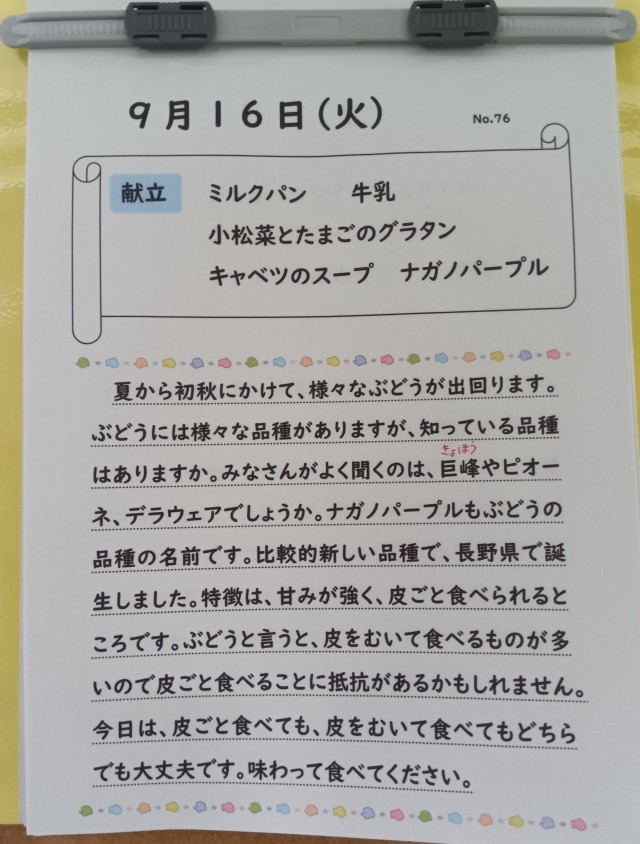 9月16日(火)
No.76
献立 ミルクパン 牛乳
小松菜とたまごのグラタン
キャベツのスープ ナガノパープル
夏から初秋にかけて、様々なぶどうが出回ります。
ぶどうには様々な品種がありますが、知っている品種
きょほう
はありますか。みなさんがよく聞くのは、巨峰やピオー
ネ、デラウェアでしょうか。ナガノパープルもぶどうの
品種の名前です。比較的新しい品種で、長野県で誕
生しました。特徴は、甘みが強く、皮ごと食べられると
ころです。ぶどうと言うと、皮をむいて食べるものが多
いので皮ごと食べることに抵抗があるかもしれません。
今日は、皮ごと食べても、皮をむいて食べてもどちら
でも大丈夫です。味わって食べてください。